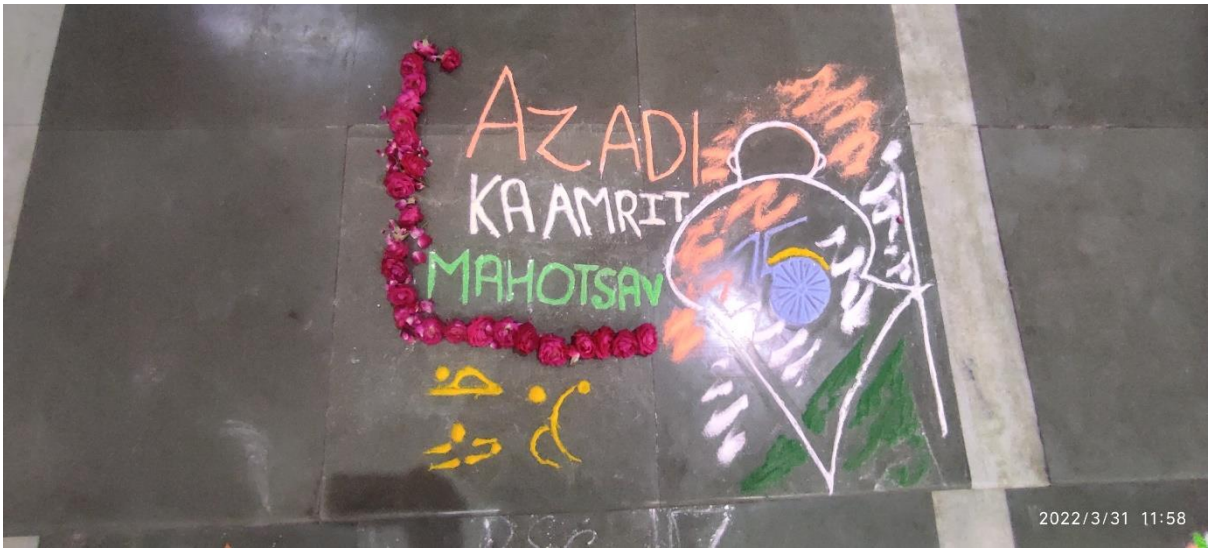 AZADI
KA AMRIT
MAHOTSAV
75
2022/3/31 11:58